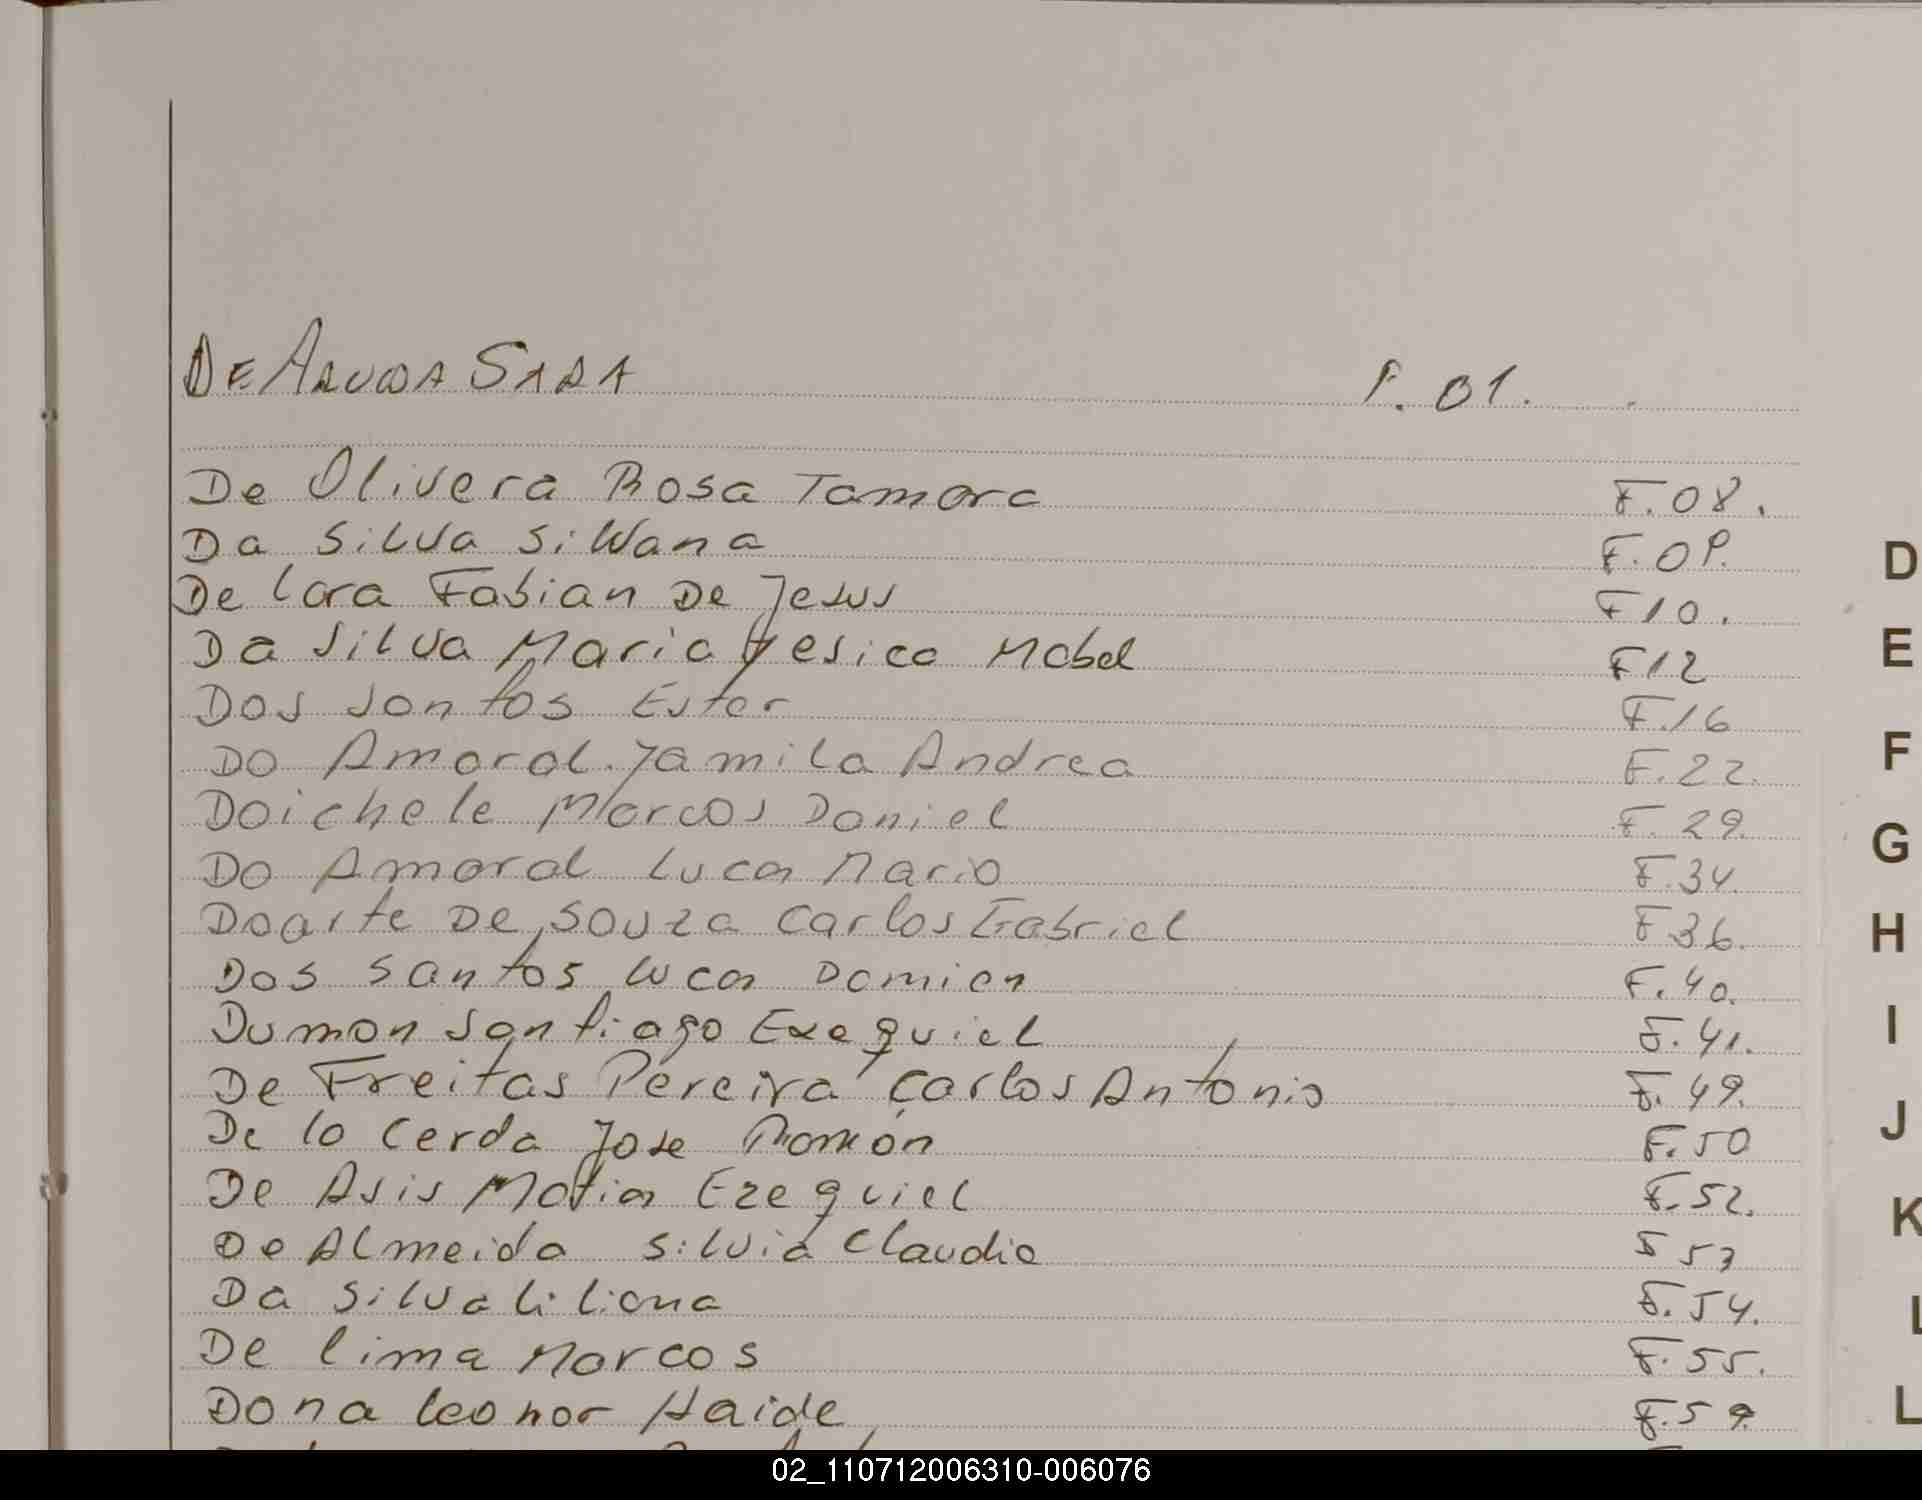 DE ARUDA SARA F. 01.
De Olivera Rosa Tamara F.08.
Da Silva Silvana F.09.
De Lara Fabian De Jesus F10.
Da Silva Maria Yesica Mabel F12
Dos Santos Ester F.16
Do Amaral Yamila Andrea F.22.
Doichele Marcos Daniel F.29.
Do Amaral Lucas Mario F.34.
Doarte De Souza Carlos Gabriel F36.
Dos Santos Lucas Damian F.40.
Dumon Santiago Exequiel F.41.
De Freitas Pereira Carlos Antonio F.49.
De la Cerda Jose Ramón F.50
De Asis Matias Ezequiel F.52.
De Almeida Silvia Claudia F 53
Da Silva Liliana F.54.
De Lima Marcos F.55.
Dona Leonor Haide F.59.
D
E
F
G
H
I
J
K
L
L
02_110712006310-006076